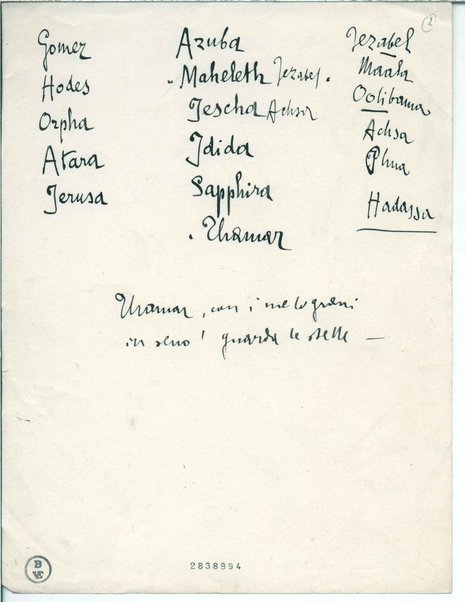 Gomez
Hodes
Orpha
Atara
Jerusa
Azuba
Maheleth Jezabel.
Jescha Achsa
Idida
Sapphira
Thamar
Jezabel
Maala
Oolibama
Achsa
Phua
Hadassa
Thamar, con i melograni
in seno! guarda le stelle —
2838994